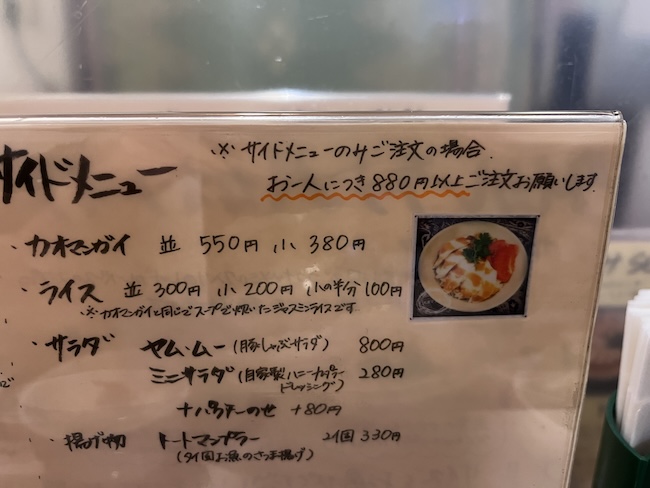 サイドメニュー
※ サイドメニューのみご注文の場合、
お一人につき880円以上ご注文お願いします。
・カオマンガイ 並 550円 小 380円
・ライス 並 300円 小 200円 小の半分 100円
※カオマンガイと同じでスープで炊いたジャスミンライスです
・サラダ ヤム・ムー (豚しゃぶサラダ) 800円
ミニサラダ (自家製ハニーナンプラードレッシング) 280円
+パクチーのせ +80円
・揚げ物 トートマンプラー 2個 330円
(タイ国お魚のさつま揚げ)